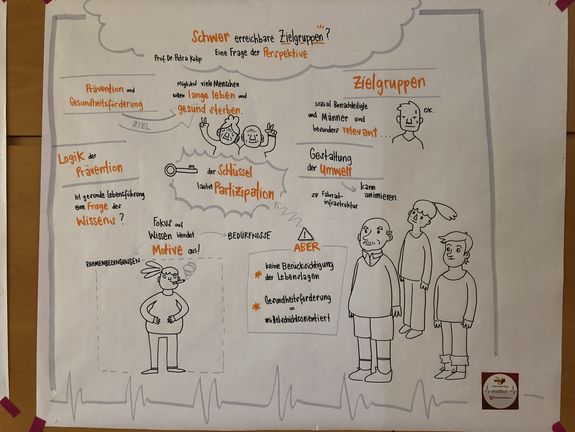 Schwer erreichbare Zielgruppen?
Eine Frage der Perspektive
Prof. Dr. Petra Kolip
Prävention und
Gesundheitsförderung
ZIEL
Möglichst viele Menschen
sollen lange leben und
gesund sterben.
Zielgruppen
sozial Benachteiligte
und Männer sind
besonders relevant...
OK.
Logik der
Prävention
Ist gesunde Lebensführung
eine Frage des
Wissens?
der Schlüssel
lautet Partizipation
Gestaltung
der Umwelt
kann
animieren.
zB Fahrrad-
infrastruktur
Fokus auf
Wissen blendet
Motive aus!
BEDÜRFNISSE
RAHMENBEDINGUNGEN
ABER
keine Berücksichtigung
der Lebenslagen
Gesundheitsförderung
=
mittelschichtsorientiert